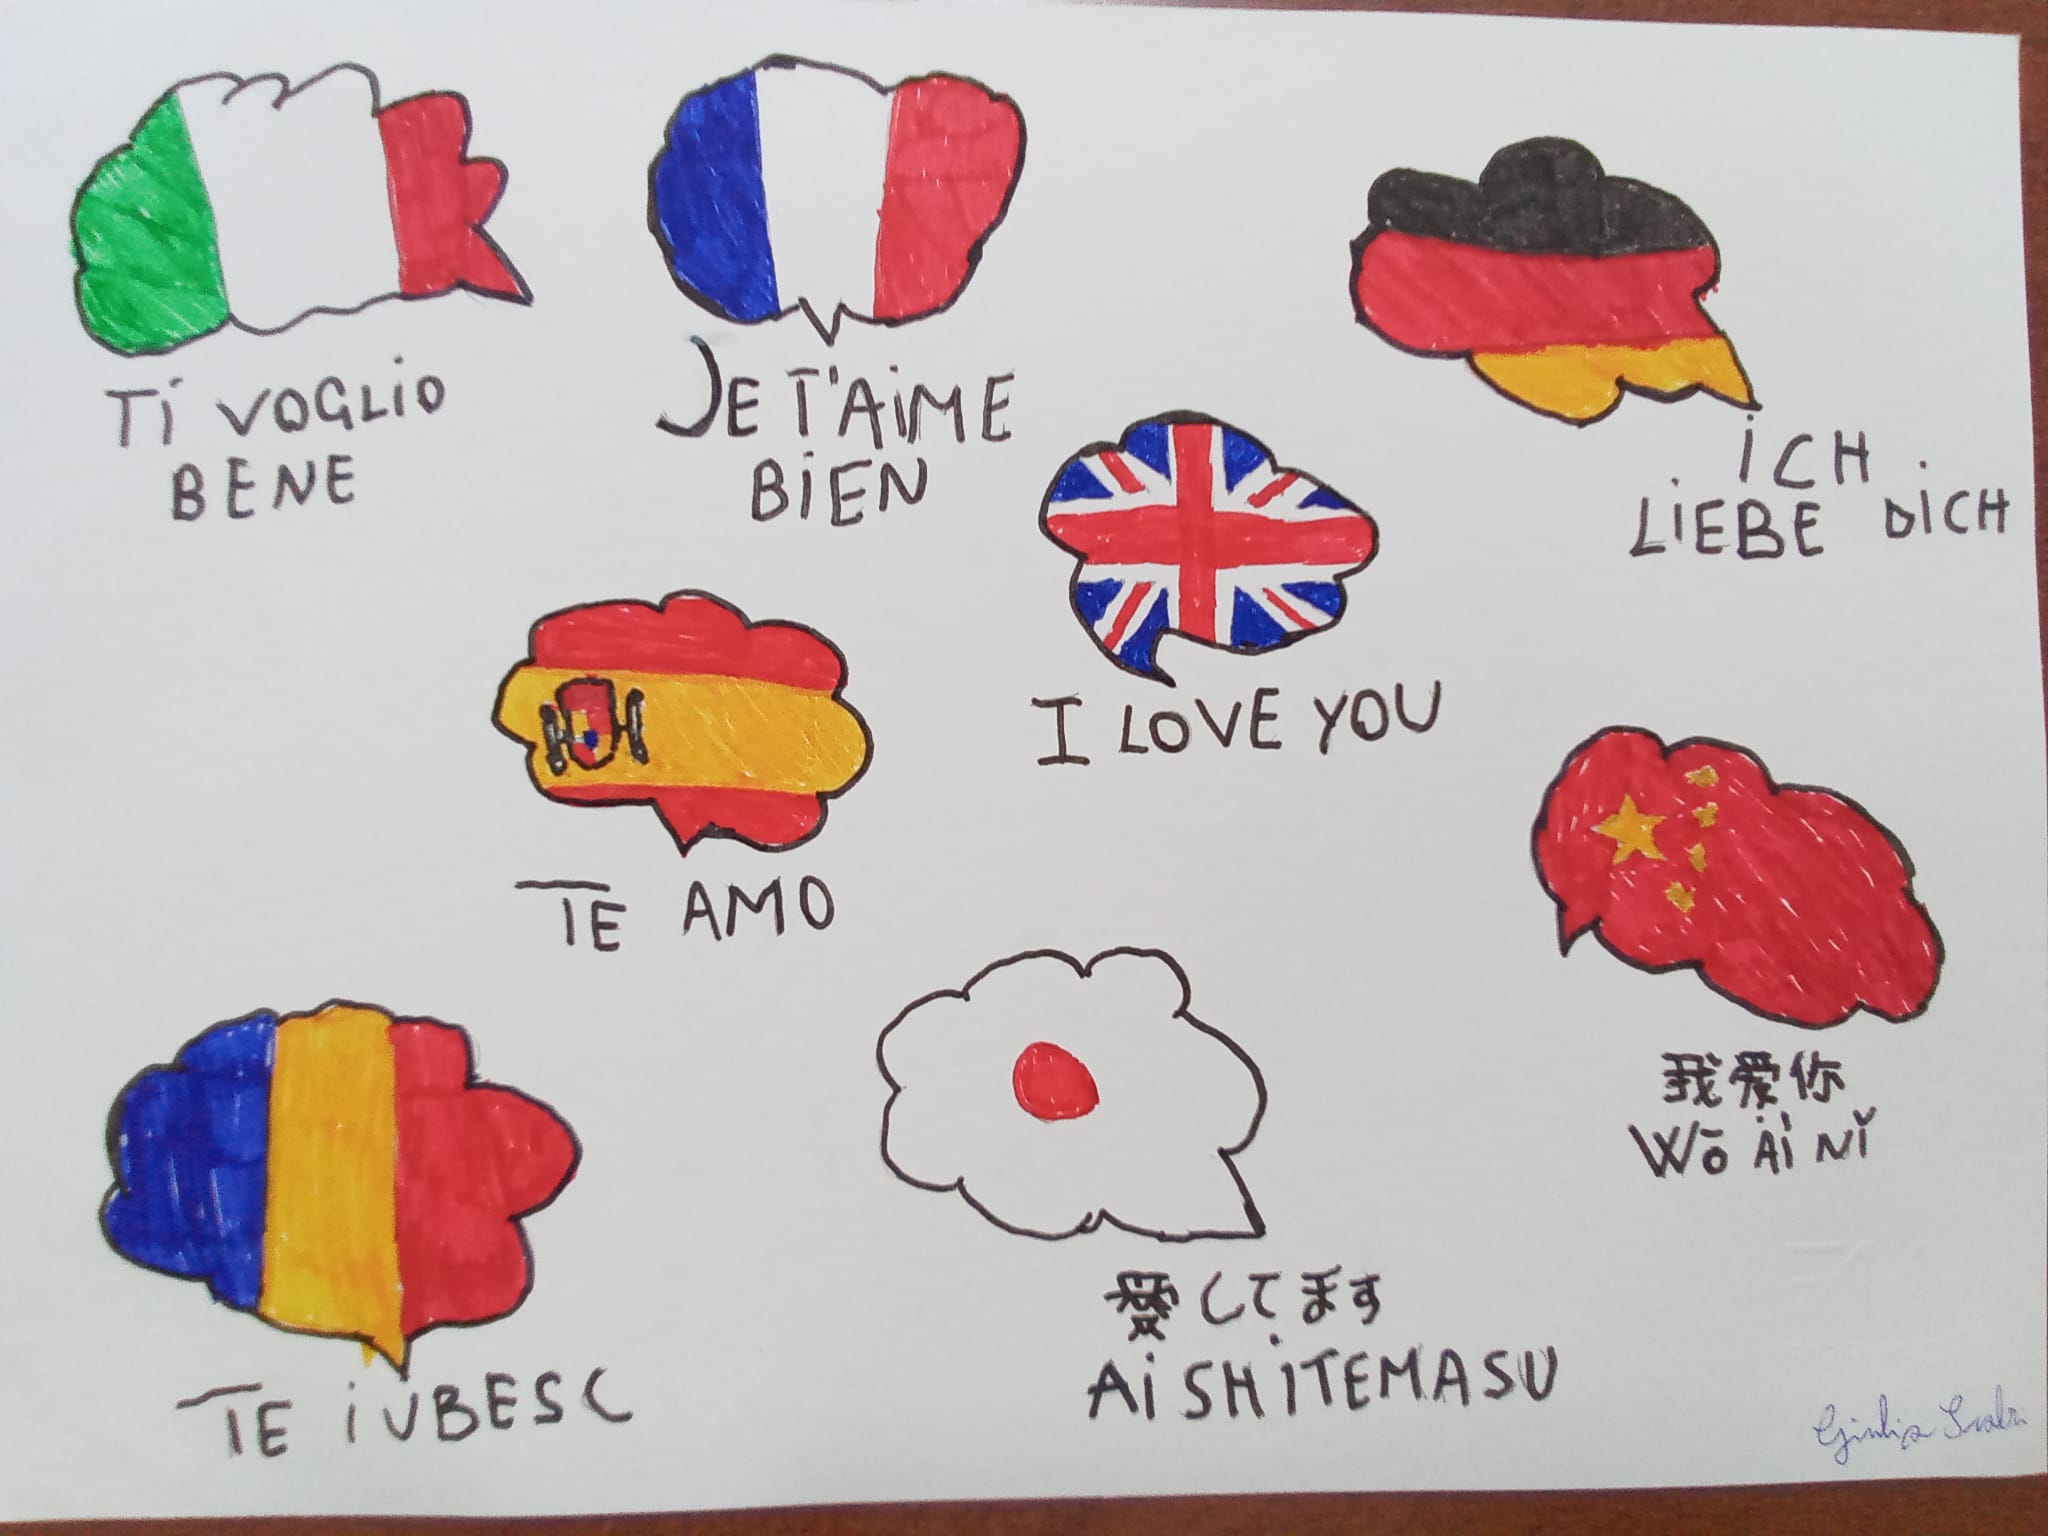 TI VOGLIO
BENE
JE T'AIME
BIEN
ICH
LIEBE DICH
I LOVE YOU
TE AMO
我爱你
WŌ Ài Nǐ
TE IUBESC
愛してます
AISHITEMASU